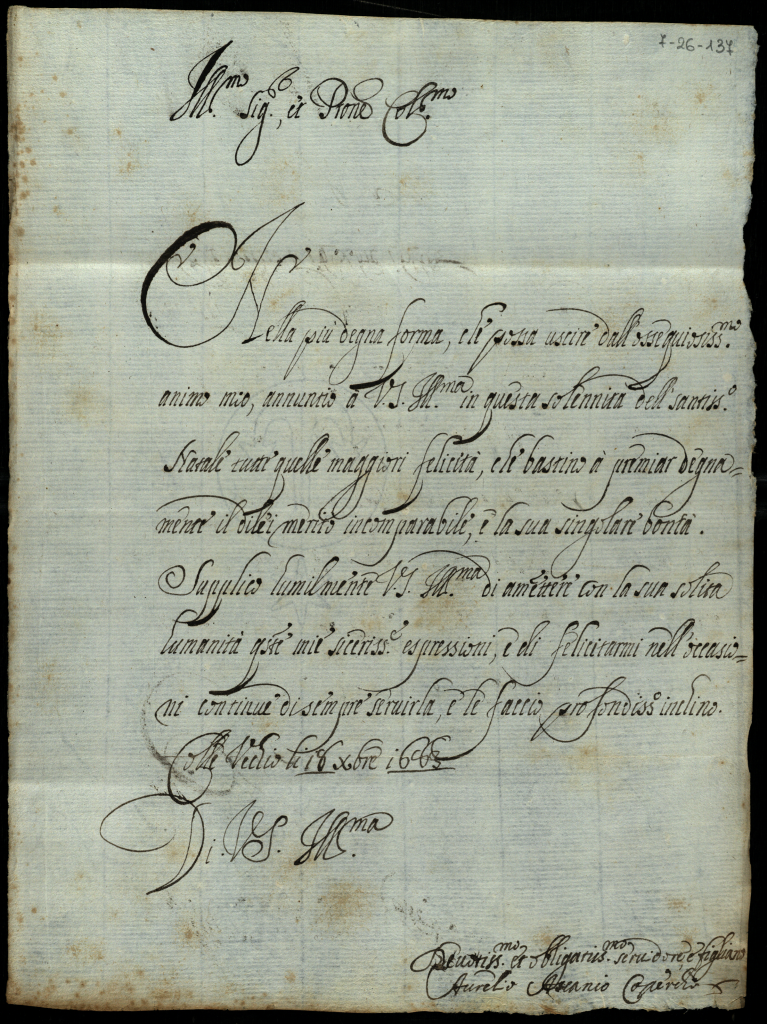 7-26-137
Ill.mo Sig.r, et Prone Coll.mo
Nella più degna forma, che possa uscire dall'ossequiosiss.mo
animo mio, annuntio à V.S. Ill.ma in questa solennità dell santiss.o
Natale tutte quelle maggiori felicità, che bastino à premiar degna=
mente il di lei merito incomparabile, e la sua singolare bontà.
Supplico humilmente V.S. Ill.ma di amettere con la sua solita
humanità q.ste mie siceriss.e espressioni, e di felicitarmi nell'occasio=
ni continue di sempre servirla, e le faccio profondiss.o inclino.
Colle Vechio li 18 xbre 1663
Di V.S. Ill.ma
Devotiss.mo et obligatiss.mo servidore, e figliano
Aurelio Ascanio